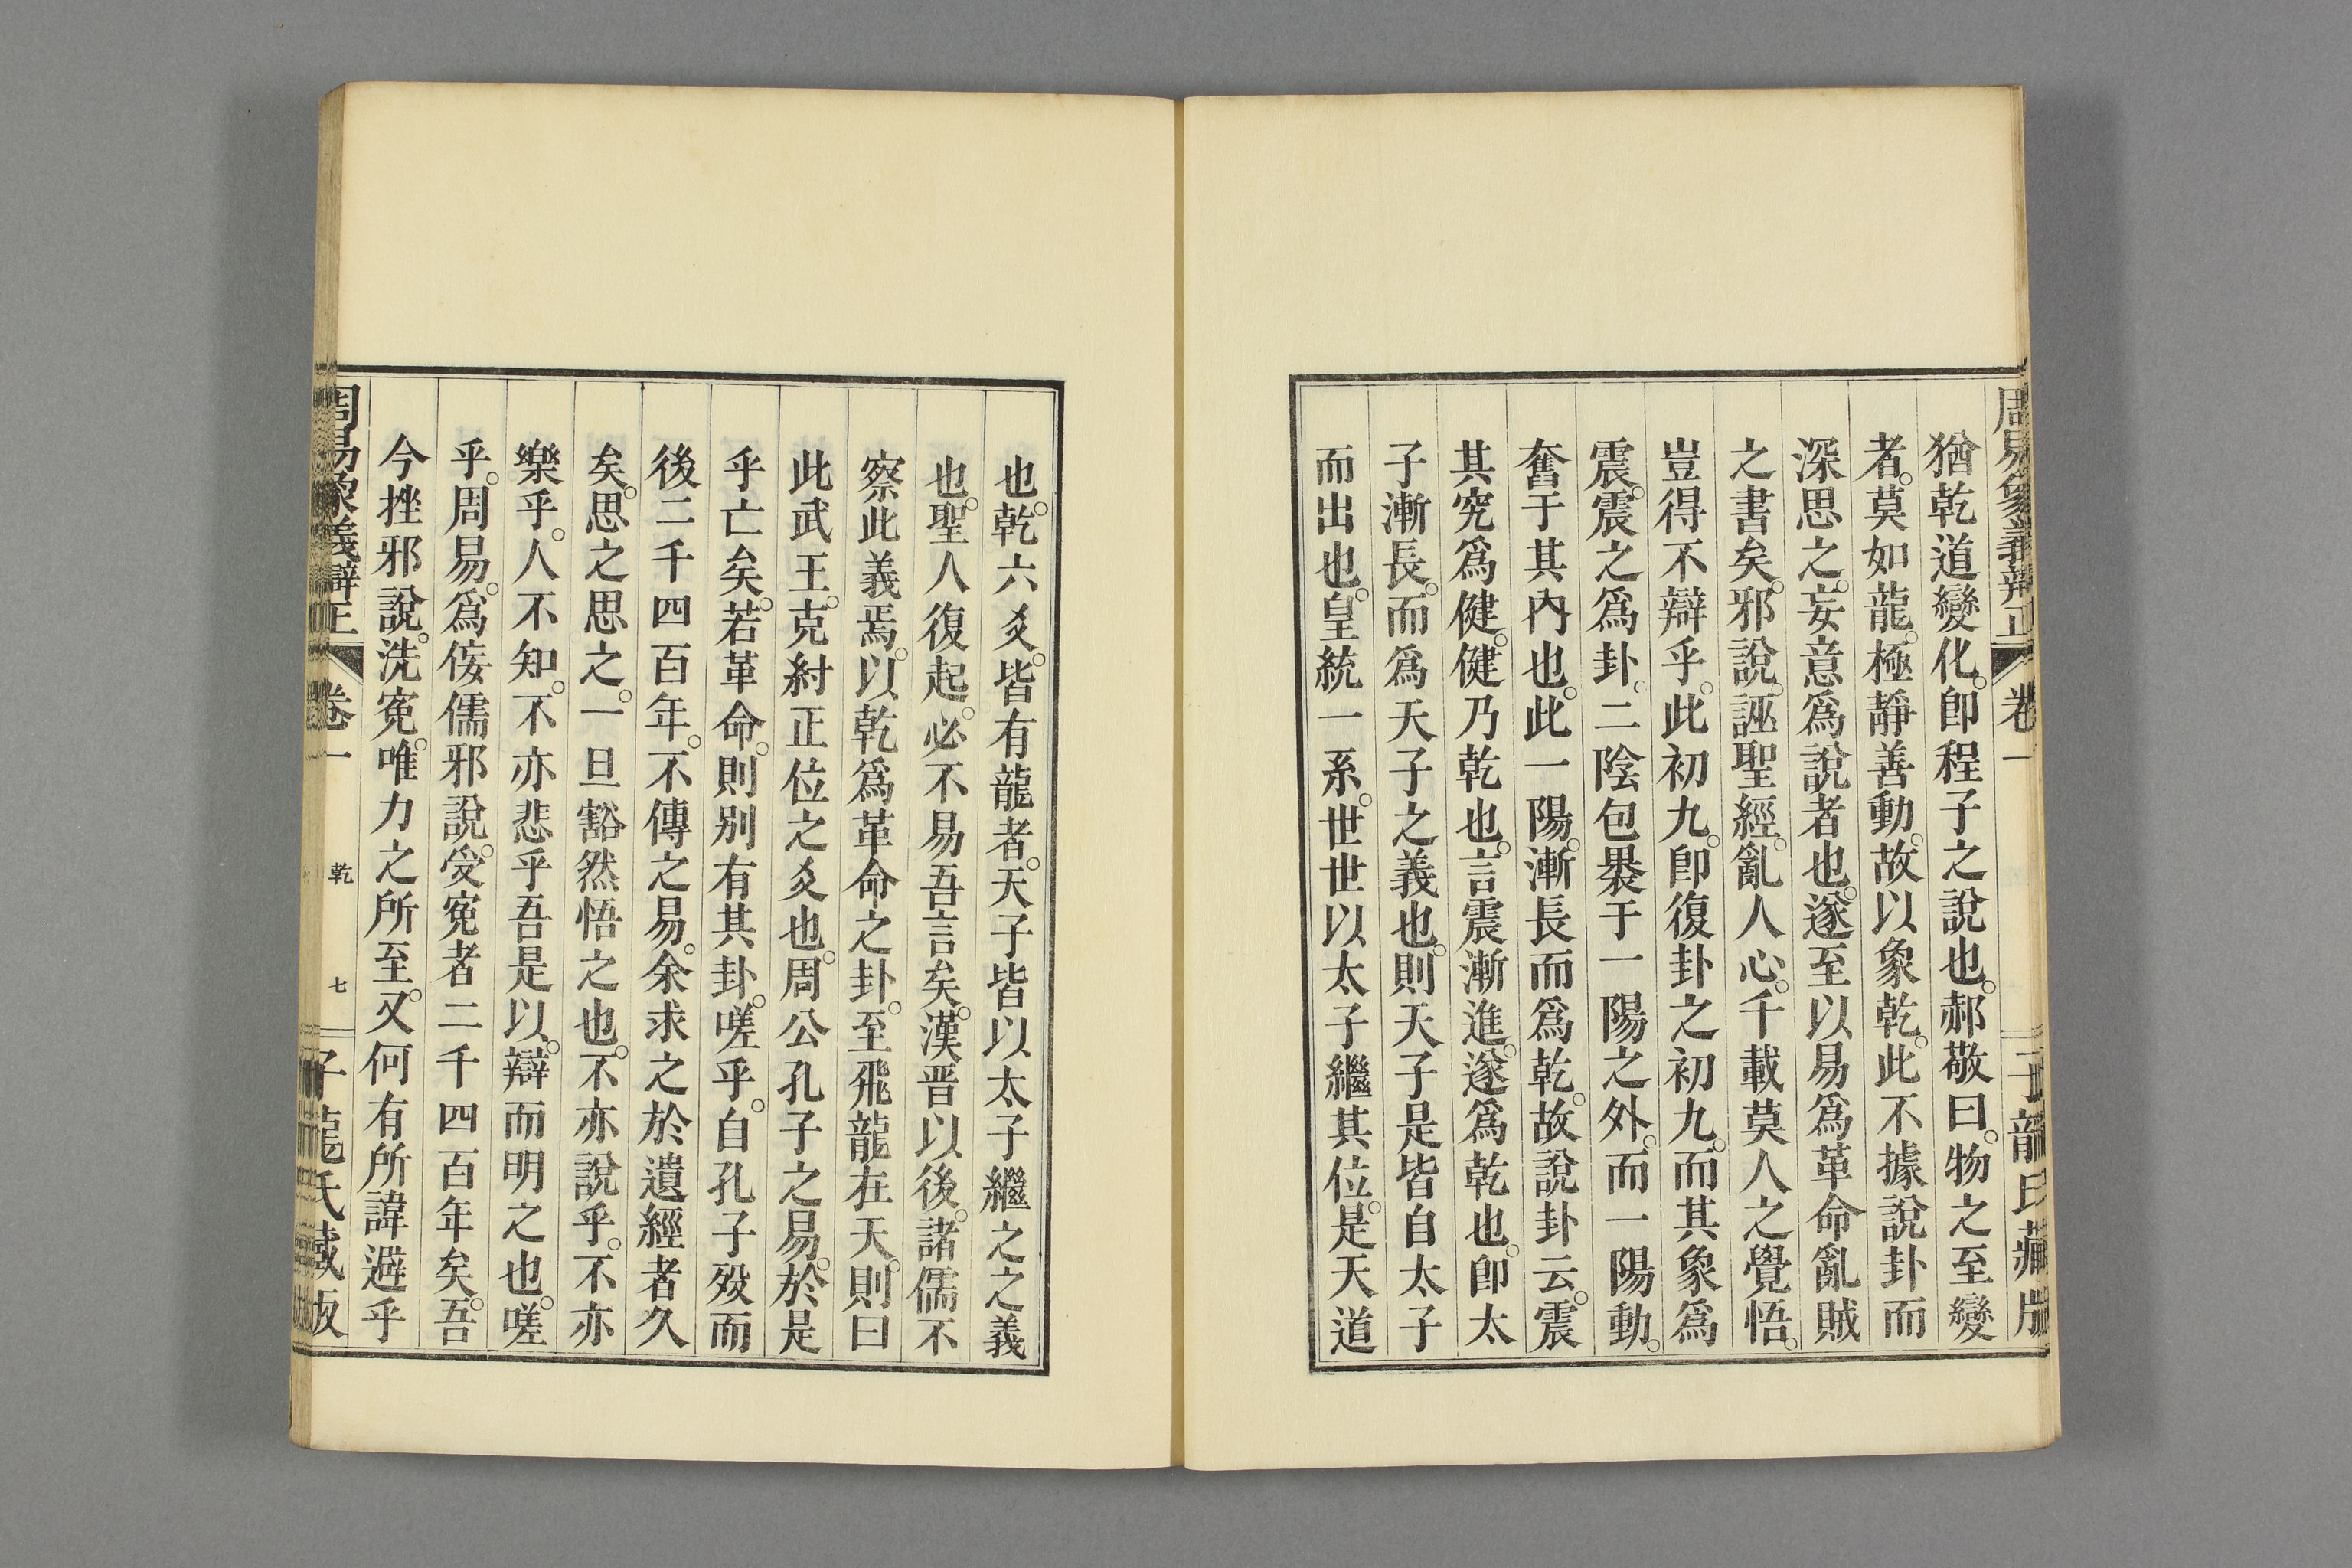 周易象義辯正 卷一 子龍氏藏版
猶乾道變化。卽程子之說也。郝敬曰。物之至變
者。莫如龍。極靜善動。故以象乾。此不據說卦而
深思之。妄意爲說者也。遂至以易爲革命亂賊
之書矣。邪說。誣聖經。亂人心。千載莫人之覺悟。
豈得不辯乎。此初九。卽復卦之初九。而其象爲
震。震之爲卦。二陰包褁于一陽之外。而一陽動。
奮于其內也。此一陽。漸長而爲乾。故說卦云。震
其究爲健。健乃乾也。言震漸進。遂爲乾也。卽太
子漸長。而爲天子之義也。則天子是皆自太子
而出也。皇統一系。世世以太子繼其位。是天道
也。乾六爻。皆有龍者。天子皆以太子繼之之義
也。聖人復起。必不易吾言矣。漢晋以後。諸儒不
察此義焉。以乾爲革命之卦。至飛龍在天。則曰
此武王。克紂正位之爻也。周公孔子之易。於是
乎亡矣。若革命。則别有其卦。嗟乎。自孔子歿而
後二千四百年。不傳之易。余求之於遺經者久
矣。思之思之。一旦豁然悟之也。不亦說乎。不亦
樂乎。人不知。不亦悲乎吾是以。辯而明之也。嗟
乎。周易。爲侫儒邪說。受寃者二千四百年矣。吾
今挫邪說。洗寃。唯力之所至。又何有所諱避乎
周易象義辯正 卷一 乾 七 子龍氏藏版